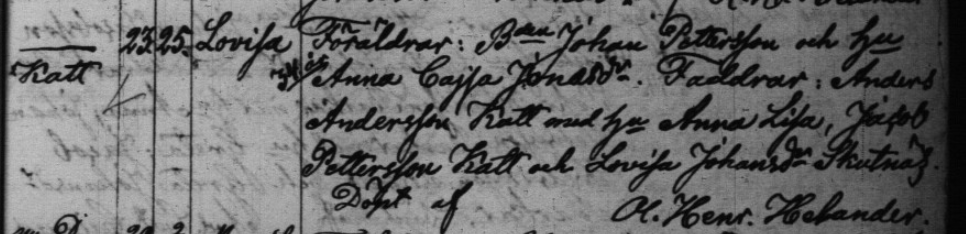 23. 25. Lovisa Föräldrar: Bon Johan Pettersson och Hu
Katt Anna Cajsa Jonasdr. Faddrar: Anders
Andersson Katt med Hu Anna Lisa, Jacob
Pettersson Katt och Lovisa Johansdr Skutnäs.
Döpt af Ol. Henr. Helander.